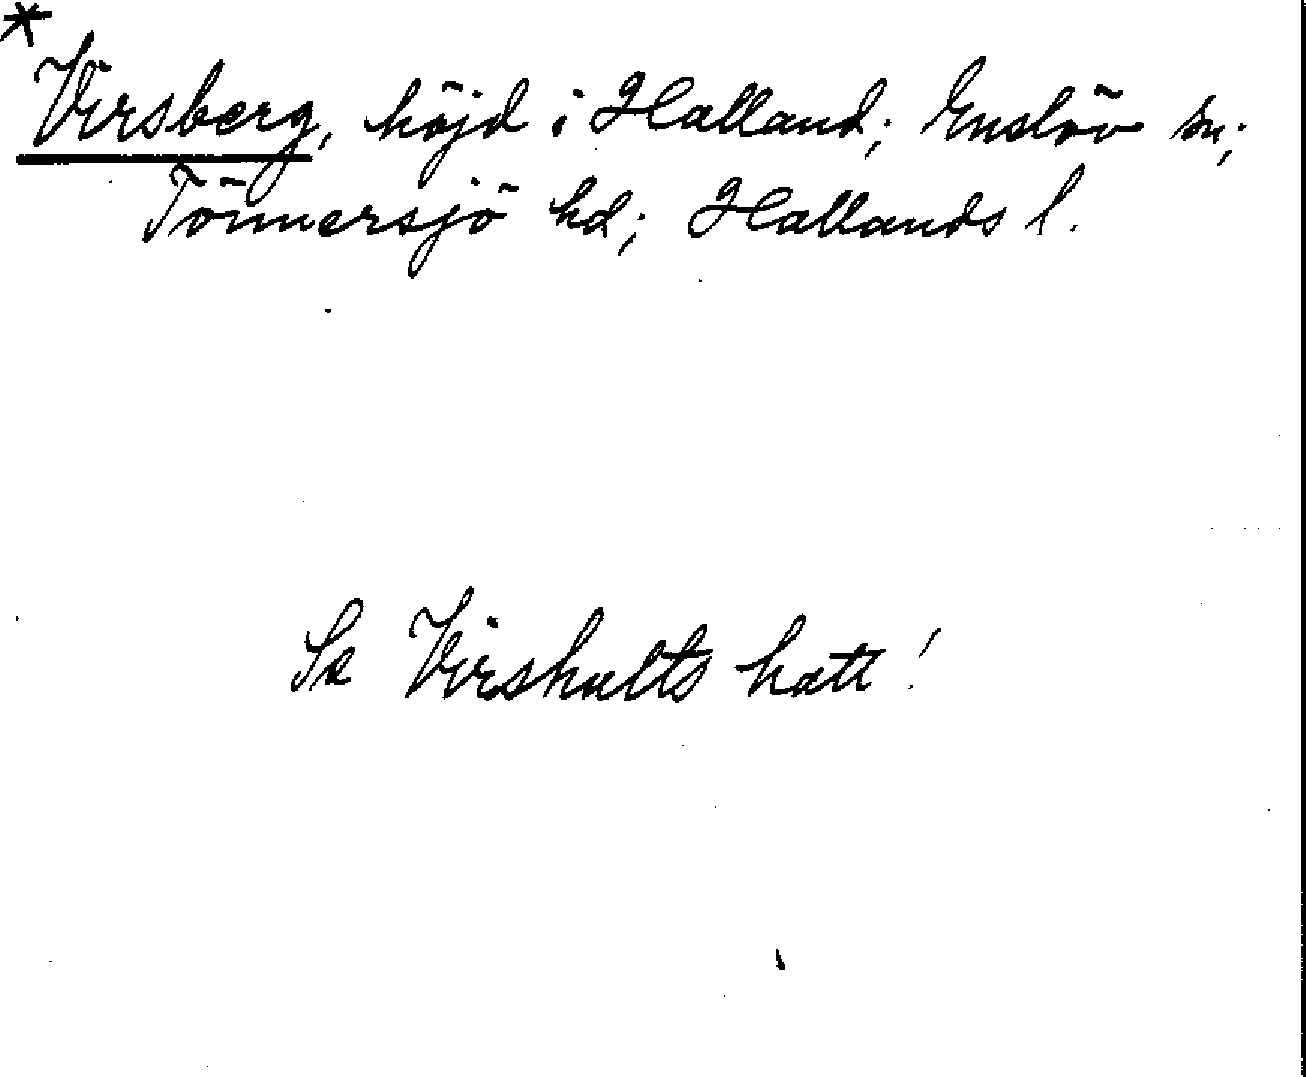 * Virsberg, höjd i Halland; Enslöv sn;
Tönnersjö hd; Hallands l.
Se Virshults hatt!